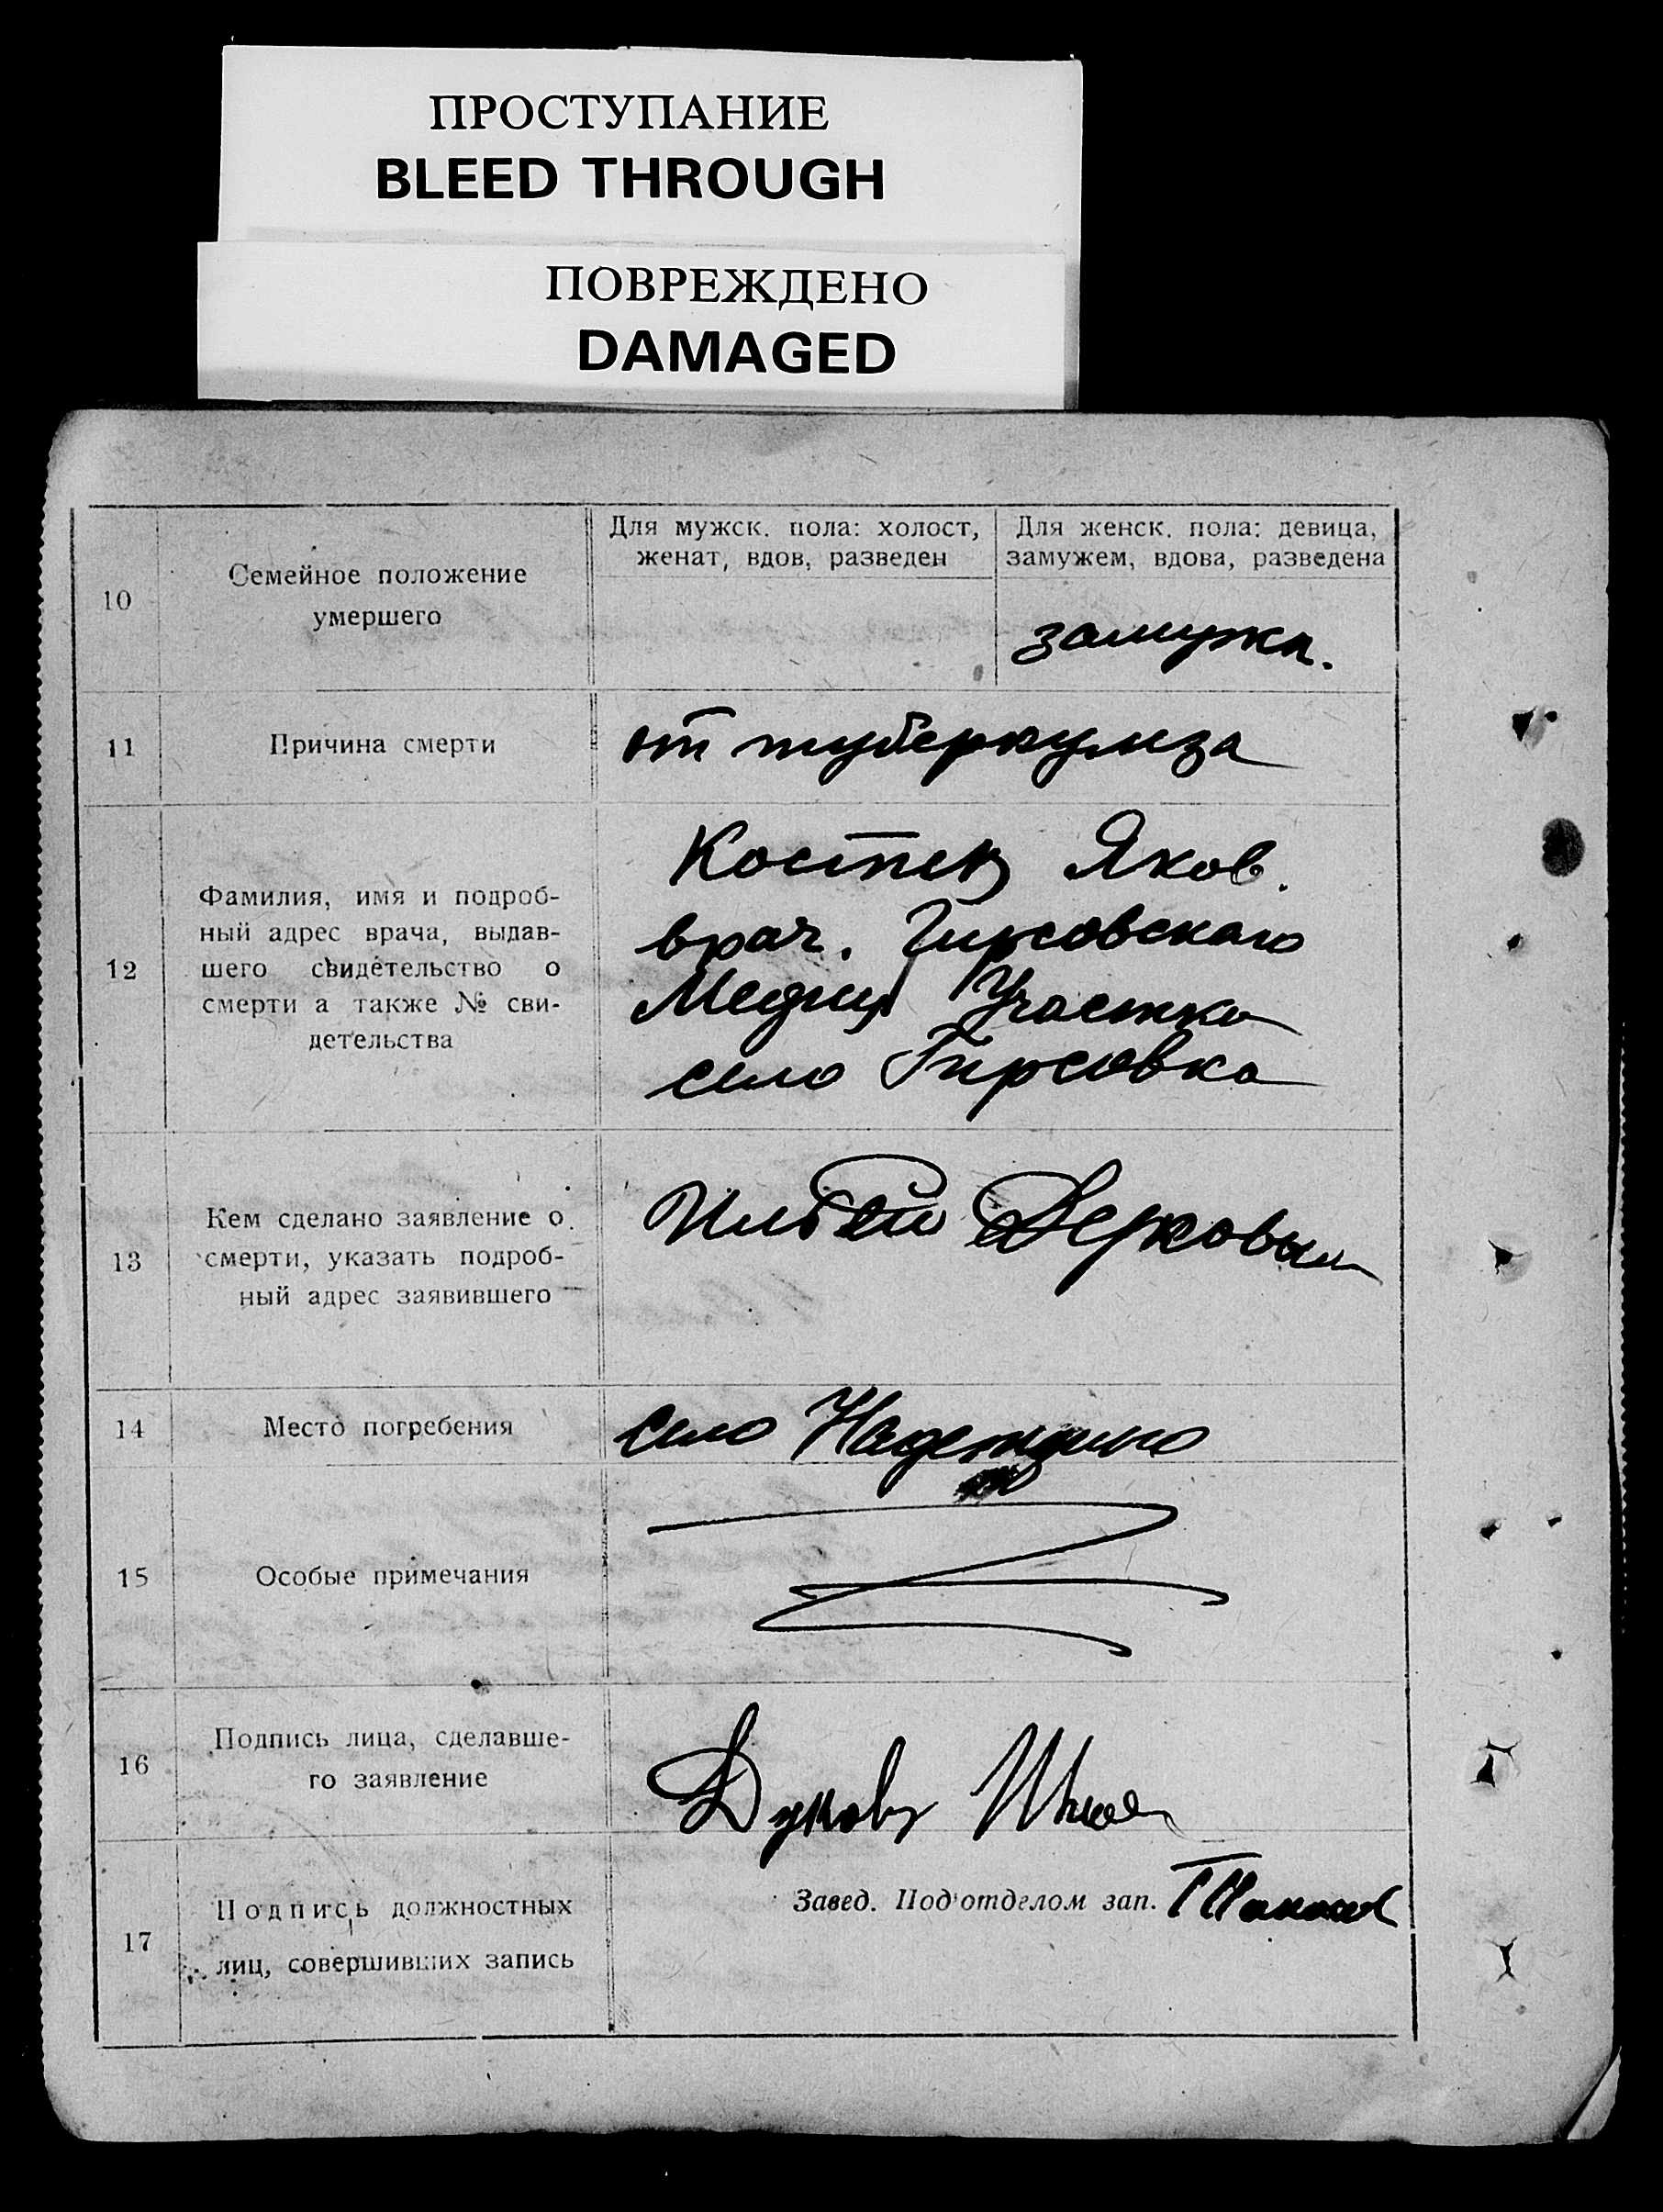 ПРОСТУПАНИЕ
BLEED THROUGH
ПОВРЕЖДЕНО
DAMAGED
10
Семейное положение
умершего
Для мужск. пола: холост,
женат, вдов, разведен
Для женск. пола: девица,
замужем, вдова, разведена
замужн.
11
Причина смерти
от туберкулиза
12
Фамилия, имя и подроб-
ный адрес врача, выдав-
шего свидетельство о
смерти а также № сви-
детельства
Яков.
врач. Гирсовскаго
Участка
село Гирсовка
13
Кем сделано заявление о
смерти, указать подроб-
ный адрес заявившего
14
Место погребения
село Надеждино
15
Особые примечания
16
Подпись лица, сделавше-
го заявление
17
Подпись должностных
лиц, совершивших запись
Завед. Под'отделом зап.